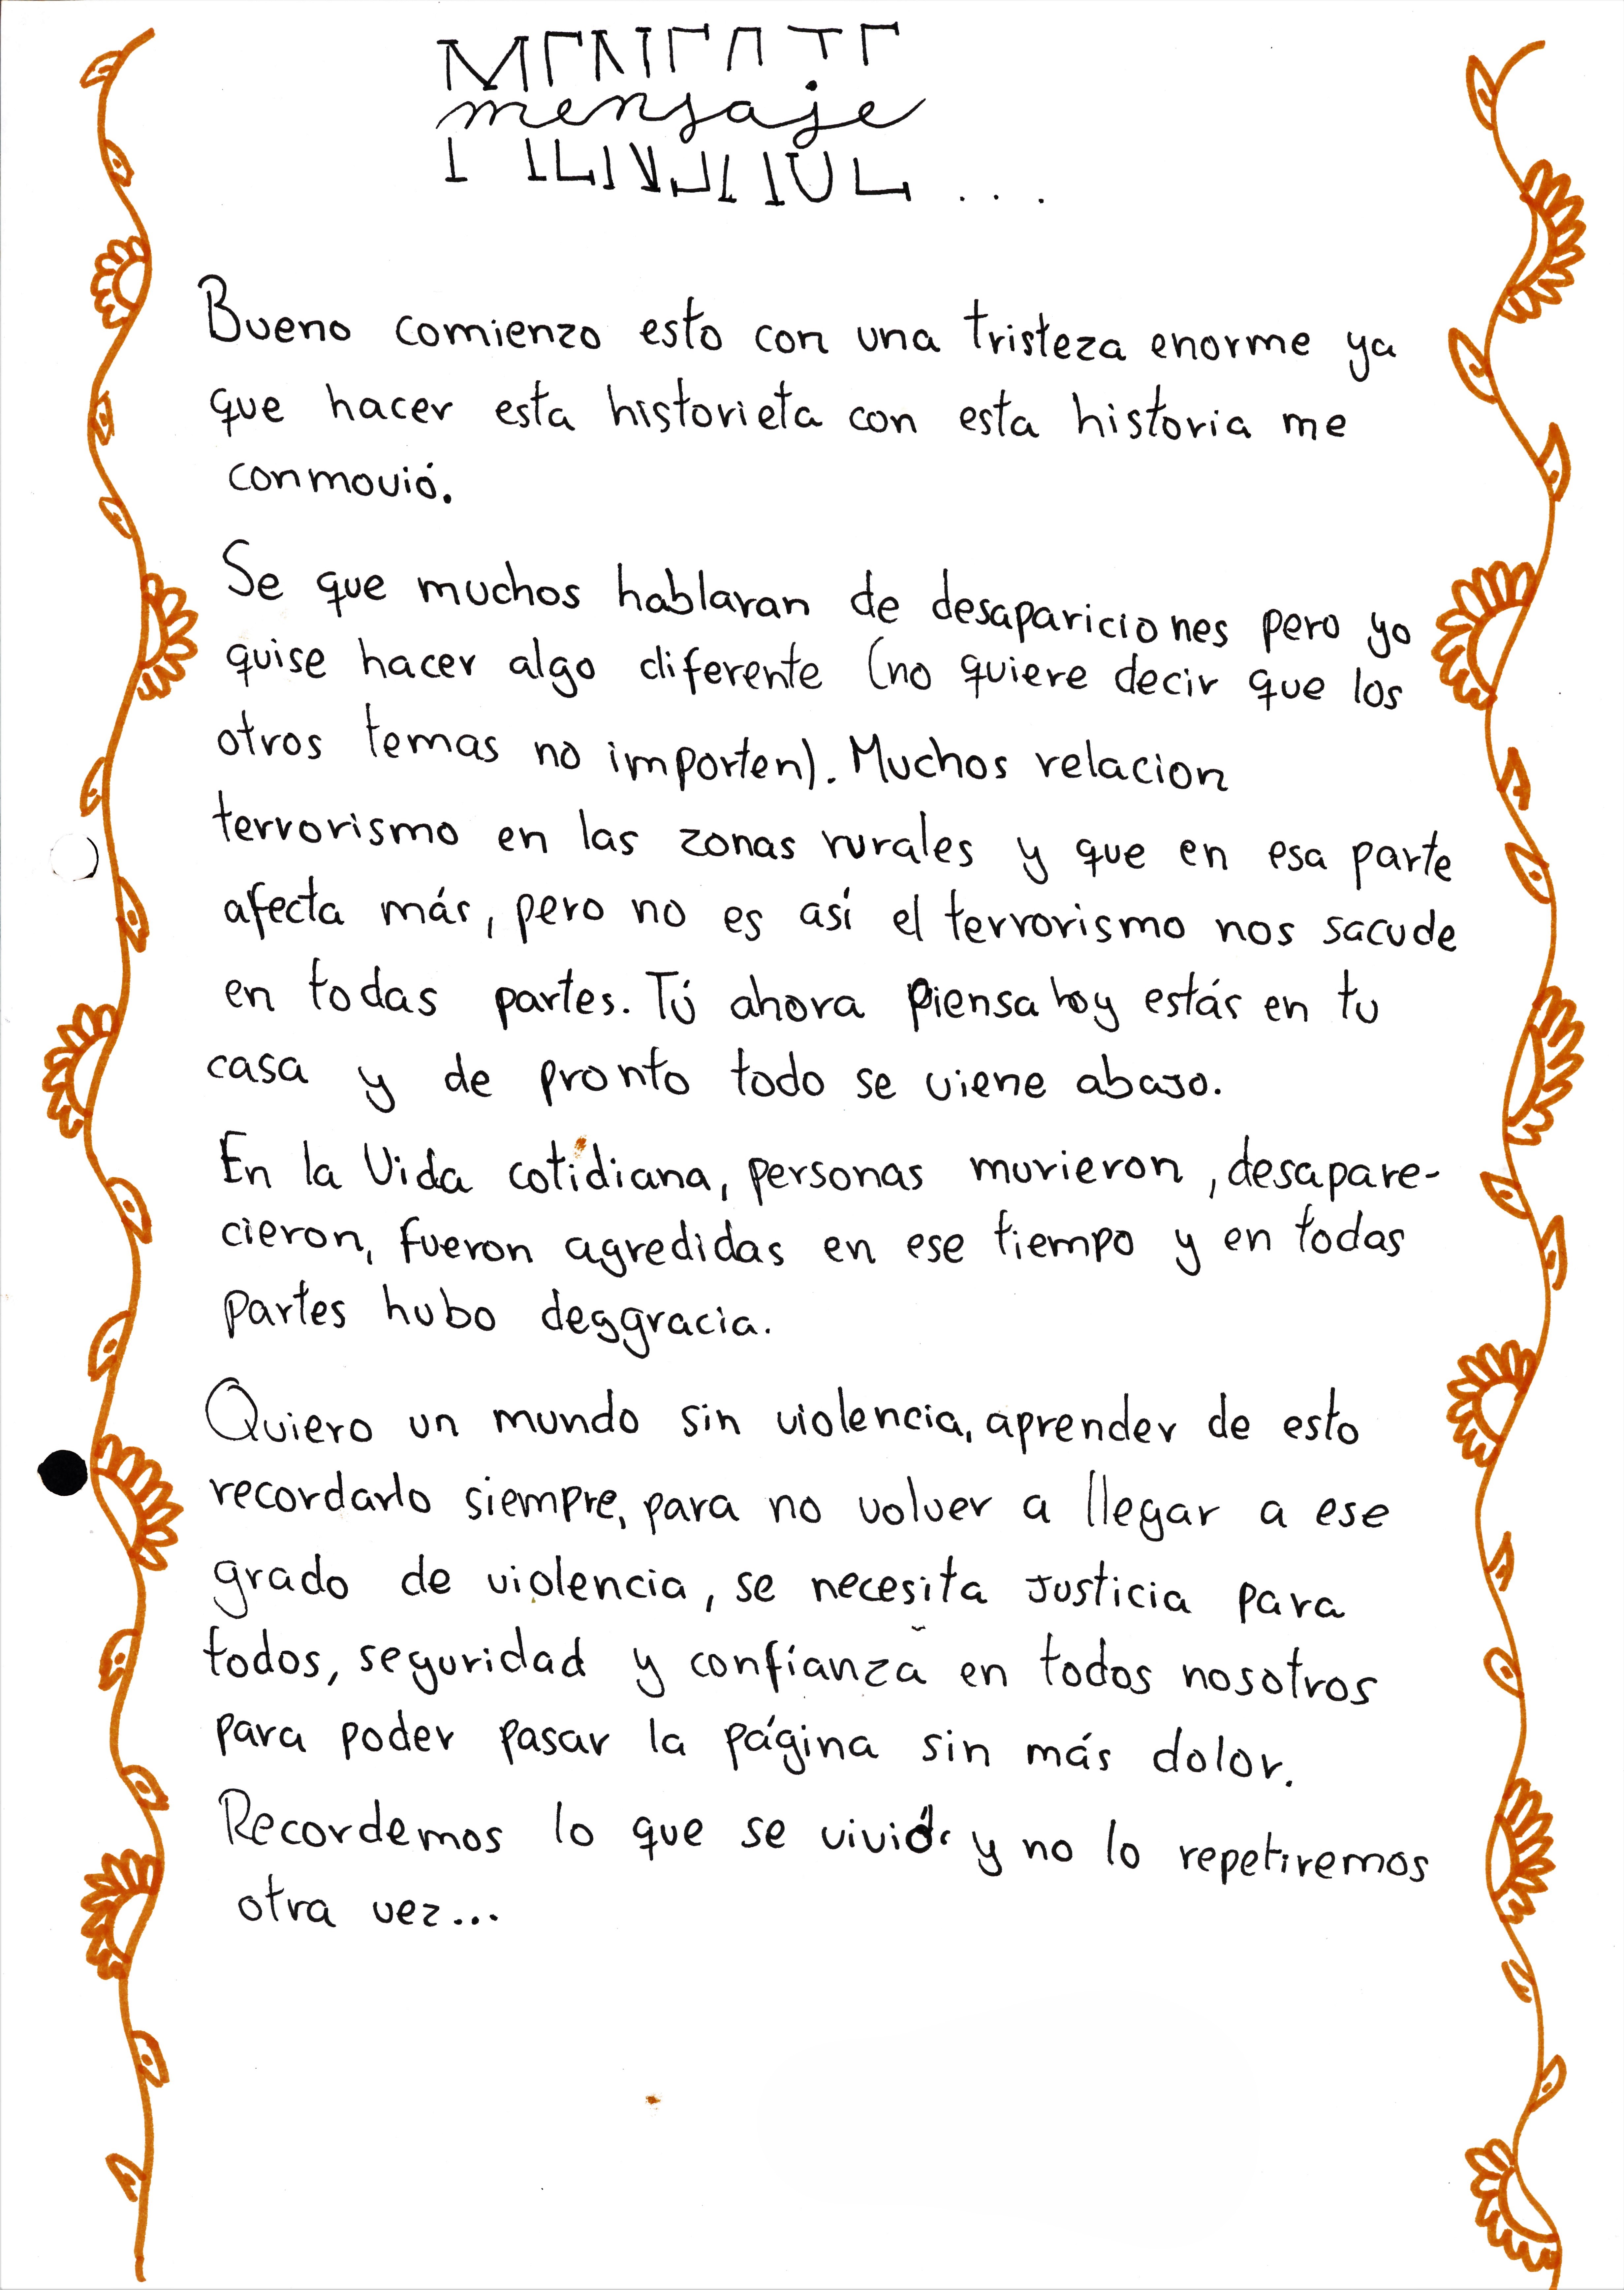 mensaje...
Bueno comienzo esto con una tristeza enorme ya
que hacer esta historieta con esta historia me
conmovió.
Se que muchos hablaran de desapariciones pero yo
quise hacer algo diferente (no quiere decir que los
otros temas no importen). Muchos relacion
terrorismo en las zonas rurales y que en esa parte
afecta más, pero no es así el terrorismo nos sacude
en todas partes. Tú ahora piensa hoy estás en tu
casa y de pronto todo se viene abajo.
En la Vida cotidiana, personas murieron, desapare-
cieron, fueron agredidas en ese tiempo y en todas
partes hubo desgracia.
Quiero un mundo sin violencia, aprender de esto
recordarlo siempre, para no volver a llegar a ese
grado de violencia, se necesita justicia para
todos, seguridad y confianza en todos nosotros
para poder pasar la página sin más dolor.
Recordemos lo que se vivió y no lo repetiremos
otra vez...